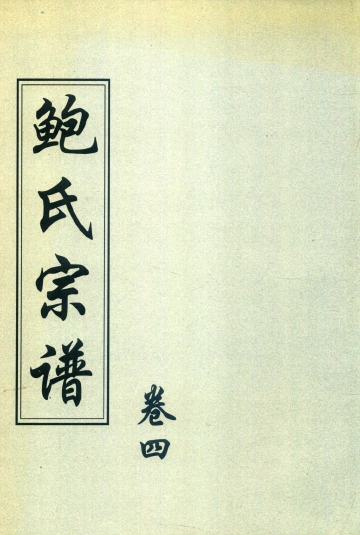 鲍氏宗谱
卷四